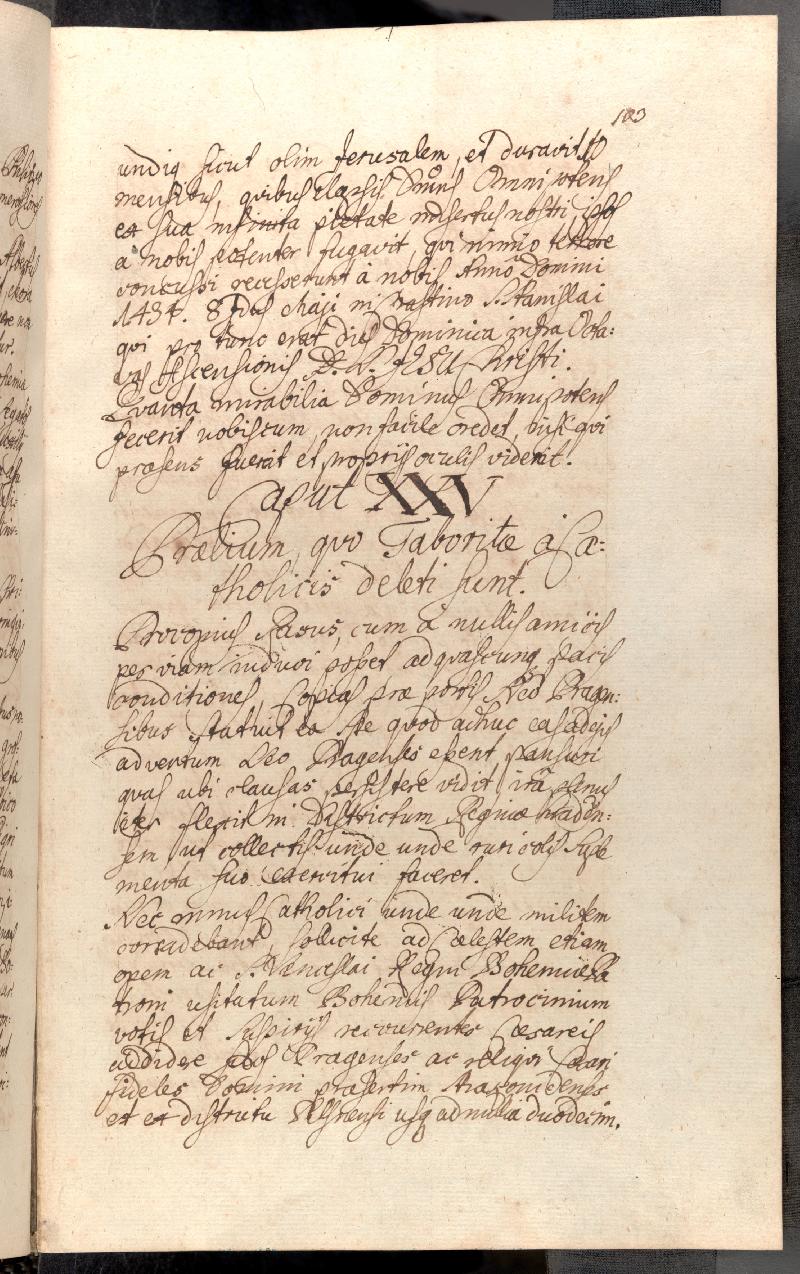 103
undiq sicut olim Jerusalem, et duravit 10
mensibus, quibus elapsis Dnus Omnipotens
ex sua infinita pietate misertus nostri, ipsos
a nobis potenter fugavit, qui nimio terrore
concussi recesserunt à nobis Anno Domini
1434. 8 Idus Maji in crastino S. Stanislai
qui pro tunc erat dies Dominica infra Octa:
vas Ascensionis D. N. JESU Christi.
Quanta mirabilia Dominus Omnipotens
fecerit nobiscum, non facile credet, nisi qui
praesens fuerit et proprijs oculis viderit.
Caput XXV
Praelium, quo Taboritae à Ca:
tholicis deleti sunt.
Procopius Rasus, cum à nullis amicis
per viam induci posset ad quascunq pacis
conditiones, copias prae portis Neo Pragen:
sibus statuit ea spe quod adhuc eas ad ejus
adventum Neo Pragenses essent pansuri
quas ubi clausas persistere vidit, ira plenus
iter flexit in Districtum Reginae Hradin:
sem ut collectis unde unde ruricolis supple
menta suo exercitui faceret.
Nec minus Catholici unde unde militem
corradebant, sollicite ad Caelestem etiam
opem ac S. Venceslai Regni Bohemiae Pa
troni usitatum Bohemis Patrocinium
votis et suspirijs recurrentes Caesareis
addidere se Pragenses ac reliqui Caesari
fideles Domini praesertim
et ex districtu Pilsnensi usq ad millia duodecim.